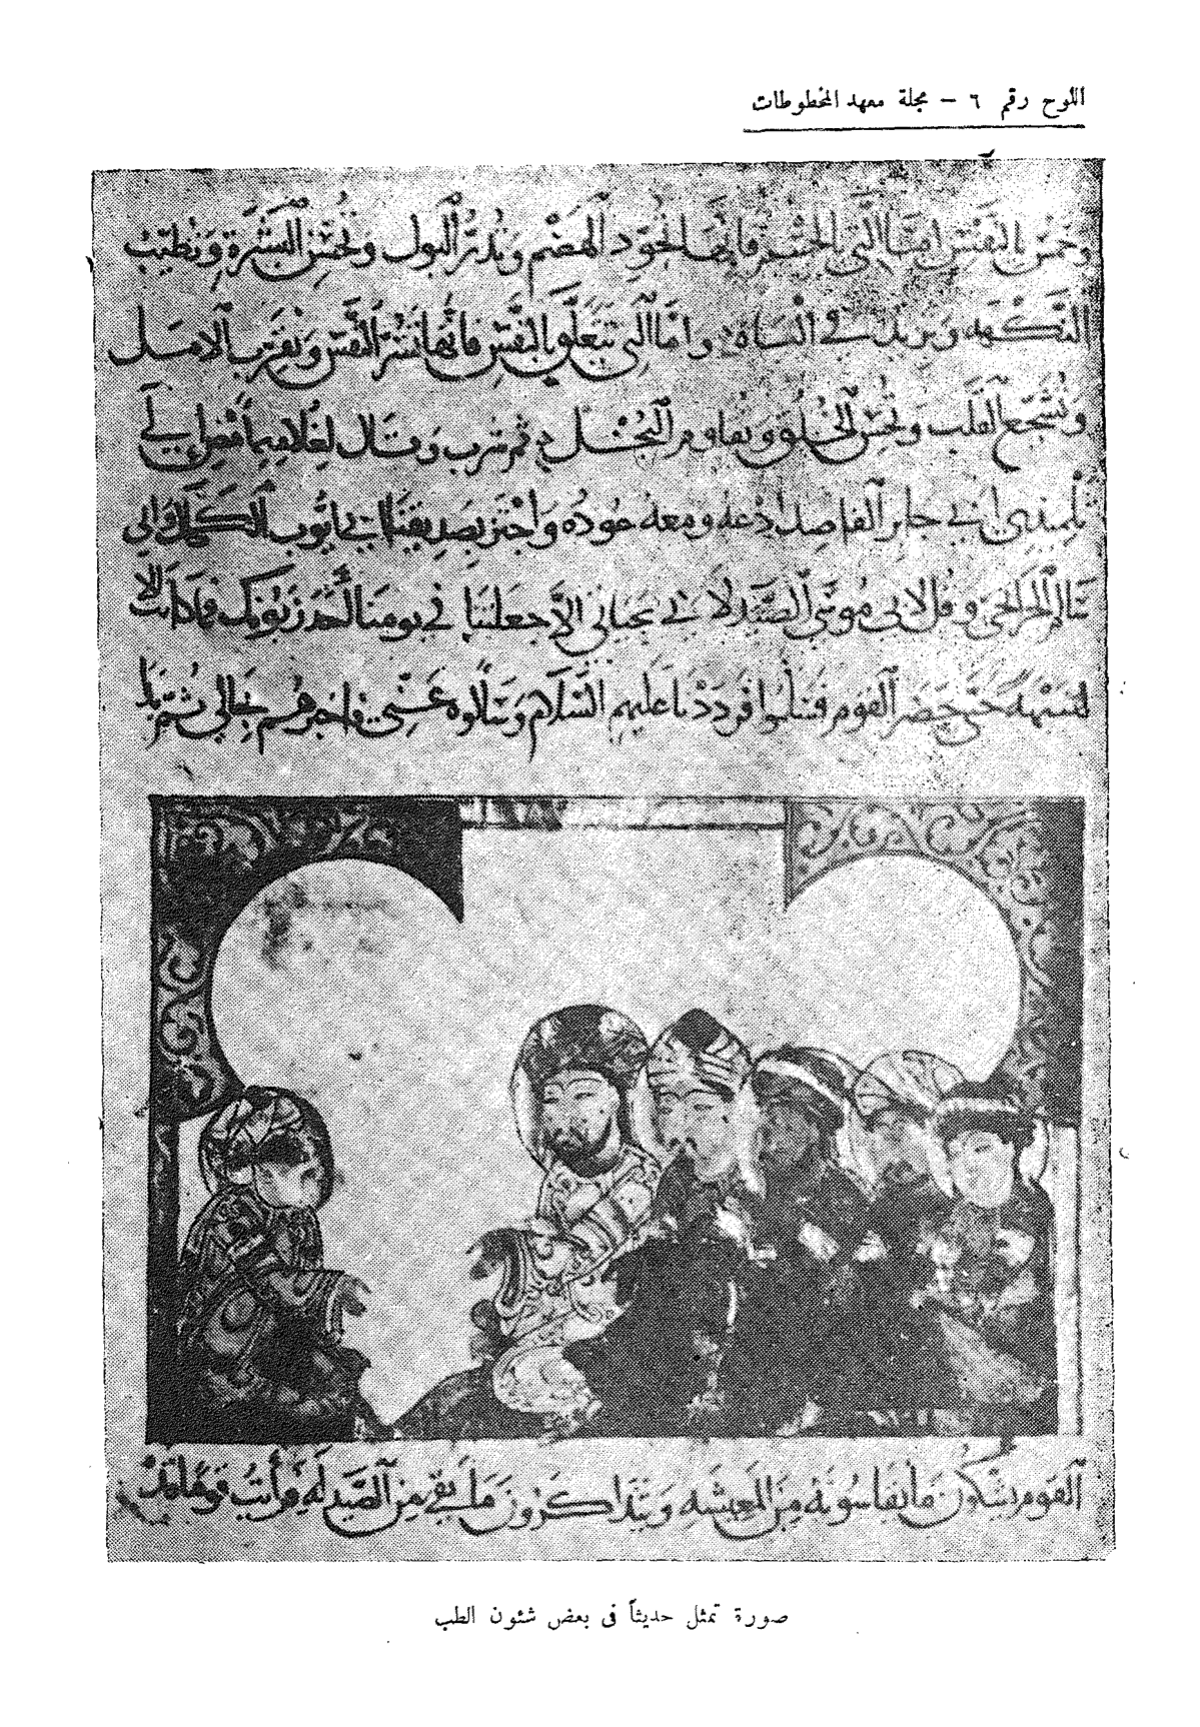 اللوح رقم ٦ — مجلة معهد المخطوطات
وخمس بالنفس اما التي بالجسم فانها تجود الهضم وتدر البول وتحسن البشرة وتطيب
النكهة وتزيد في الباه واما التي تتعلق بالنفس فانها تسر النفس وتقرب الامل
وتشجع القلب وتحسن الخلق وتقاوم البخل ثم شرب وقال لغلامه امض الى
تلميذي ابي جابر الفاصد ادعه ومعه عوده واجتز بصديقنا ابي ايوب الكحال والى
سالم الجراحي وقل لابي موسى الصيدلاني بحياتي الا جعلتنا في يومنا احد زبونك
حتى حضر القوم فسلموا فرددنا عليهم السلام وسالوه عني فاخبرهم بحالي ثم بدا
القوم يشكون ما يقاسونه من المعيشه ويتذاكرون ما بقي من الصيدله ورأيت قوما قد
صورة تمثل حديثاً فى بعض شئون الطب